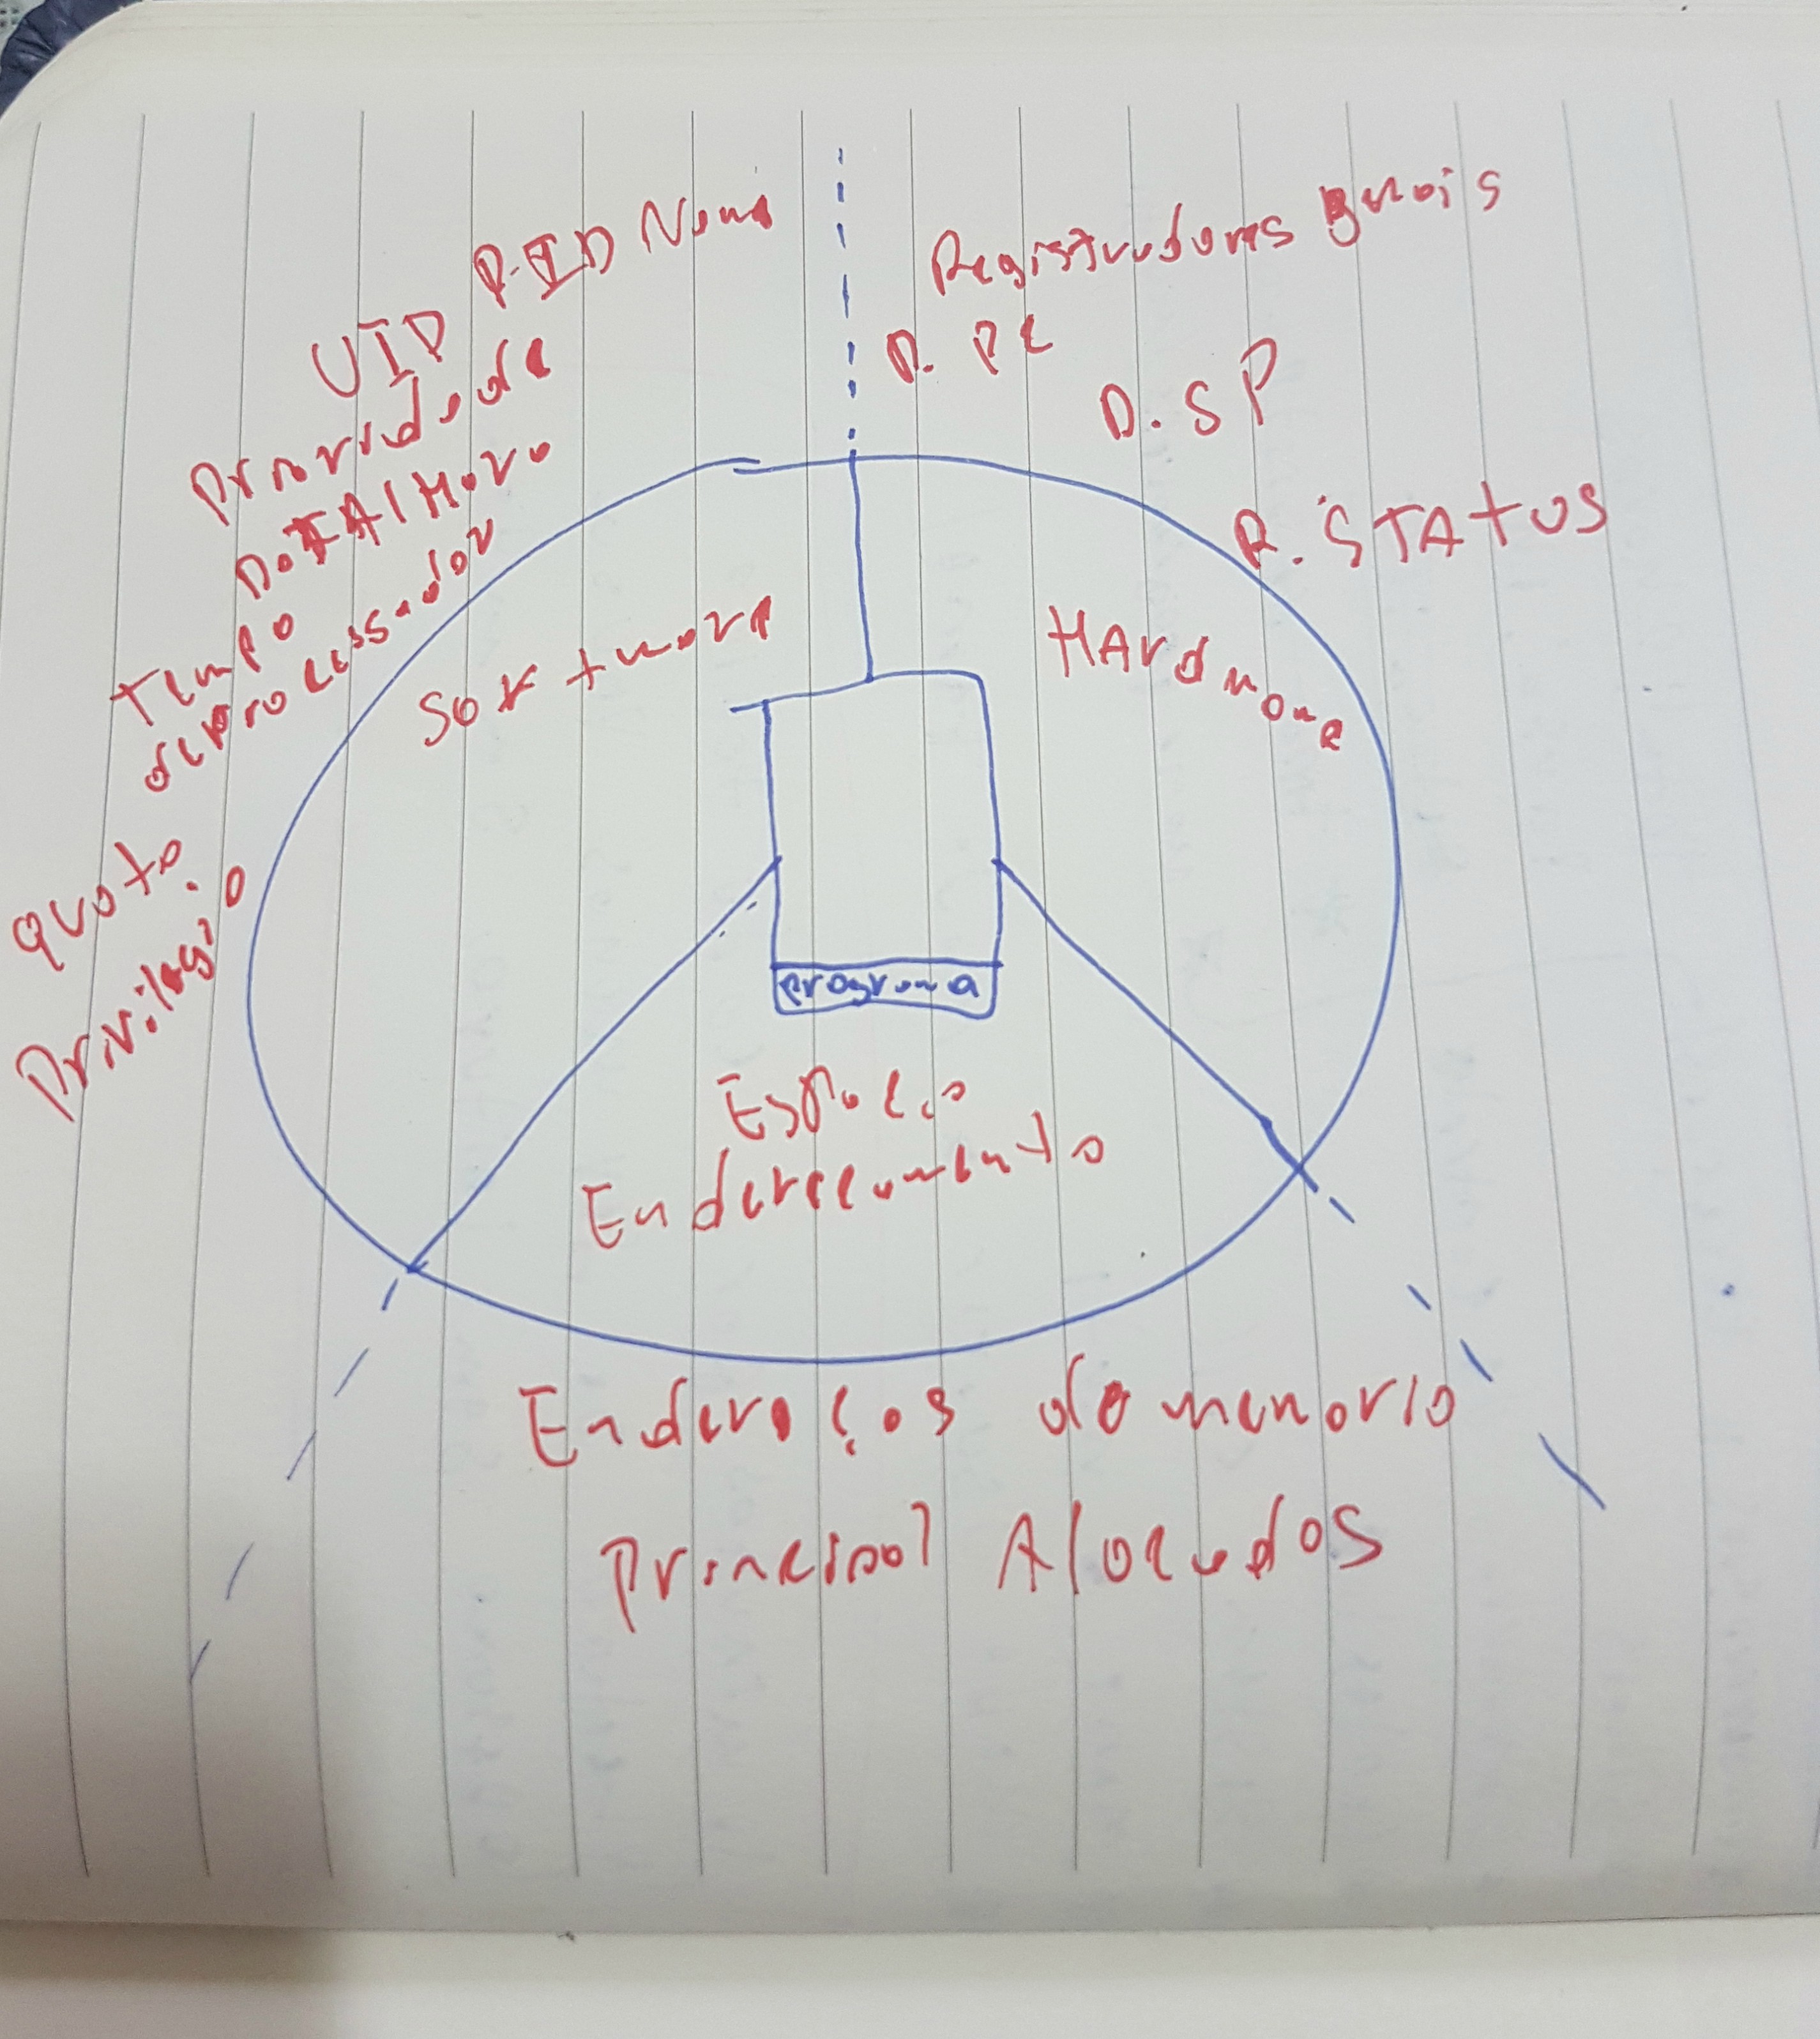 PID Nome
UID
Prioridade
DATA/Hora
tempo
de processador
quota
Privilegio
Registradores gerais
R. PC
R. SP
R. STATUS
Software
Hardware
programa
Espaço
Endereçamento
Endereços de memoria
Principal Alocados